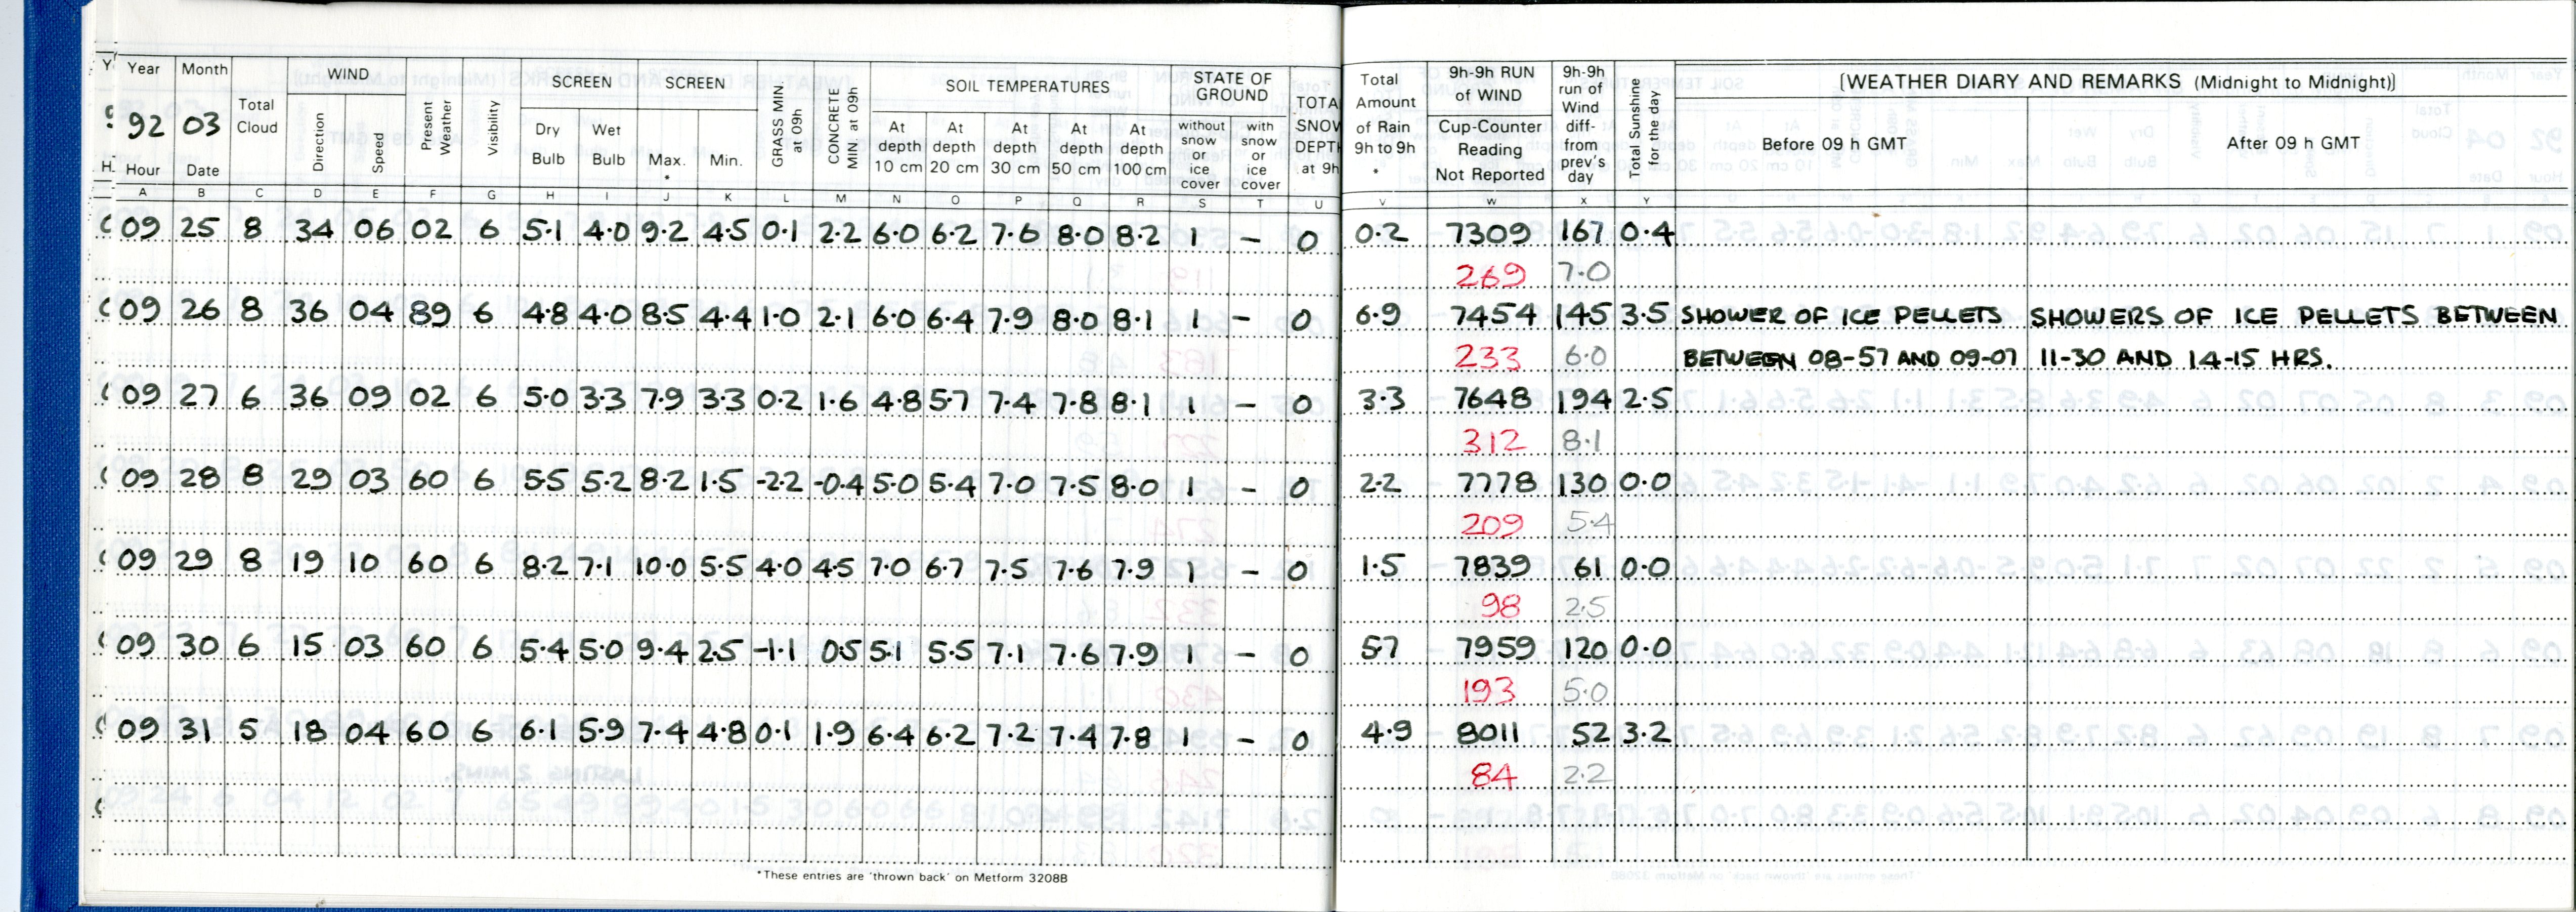 Year Month Total Cloud WIND Present Weather Visibility SCREEN SCREEN GRASS MIN. at 09h CONCRETE MIN. at 09h SOIL TEMPERATURES STATE OF GROUND TOTA SNOW DEPTH at 9h Total Amount of Rain 9h to 9h * 9h-9h RUN of WIND 9h-9h run of Wind diff- from prev's day Total Sunshine for the day [WEATHER DIARY AND REMARKS (Midnight to Midnight)]
92 03 Direction Speed Dry Bulb Wet Bulb Max. * Min. At depth 10 cm At depth 20 cm At depth 30 cm At depth 50 cm At depth 100 cm without snow or ice cover with snow or ice cover Cup-Counter Reading Not Reported Before 09 h GMT After 09 h GMT
Hour Date
A B C D E F G H I J K L M N O P Q R S T U V W X Y
09 25 8 34 06 02 6 5.1 4.0 9.2 4.5 0.1 2.2 6.0 6.2 7.6 8.0 8.2 1 – 0 0.2 7309 167 0.4
269 7.0
09 26 8 36 04 89 6 4.8 4.0 8.5 4.4 1.0 2.1 6.0 6.4 7.9 8.0 8.1 1 – 0 6.9 7454 145 3.5 SHOWER OF ICE PELLETS SHOWERS OF ICE PELLETS BETWEEN
233 6.0 BETWEEN 08-57 AND 09-07 11-30 AND 14-15 HRS.
09 27 6 36 09 02 6 5.0 3.3 7.9 3.3 0.2 1.6 4.8 5.7 7.4 7.8 8.1 1 – 0 3.3 7648 194 2.5
312 8.1
09 28 8 29 03 60 6 5.5 5.2 8.2 1.5 -2.2 -0.4 5.0 5.4 7.0 7.5 8.0 1 – 0 2.2 7778 130 0.0
209 5.4
09 29 8 19 10 60 6 8.2 7.1 10.0 5.5 4.0 4.5 7.0 6.7 7.5 7.6 7.9 1 – 0 1.5 7839 61 0.0
98 2.5
09 30 6 15 03 60 6 5.4 5.0 9.4 2.5 -1.1 0.5 5.1 5.5 7.1 7.6 7.9 1 – 0 5.7 7959 120 0.0
193 5.0
09 31 5 18 04 60 6 6.1 5.9 7.4 4.8 0.1 1.9 6.4 6.2 7.2 7.4 7.8 1 – 0 4.9 8011 52 3.2
84 2.2
*These entries are 'thrown back' on Metform 3208B